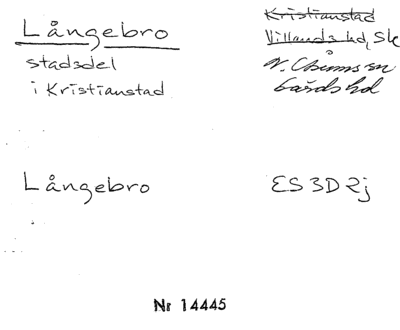 Långebro
stadsdel
i Kristianstad
Kristianstad
Villands hd, Sk
V.
Gärds hd
Långebro
ES3D2j
Nr 14445